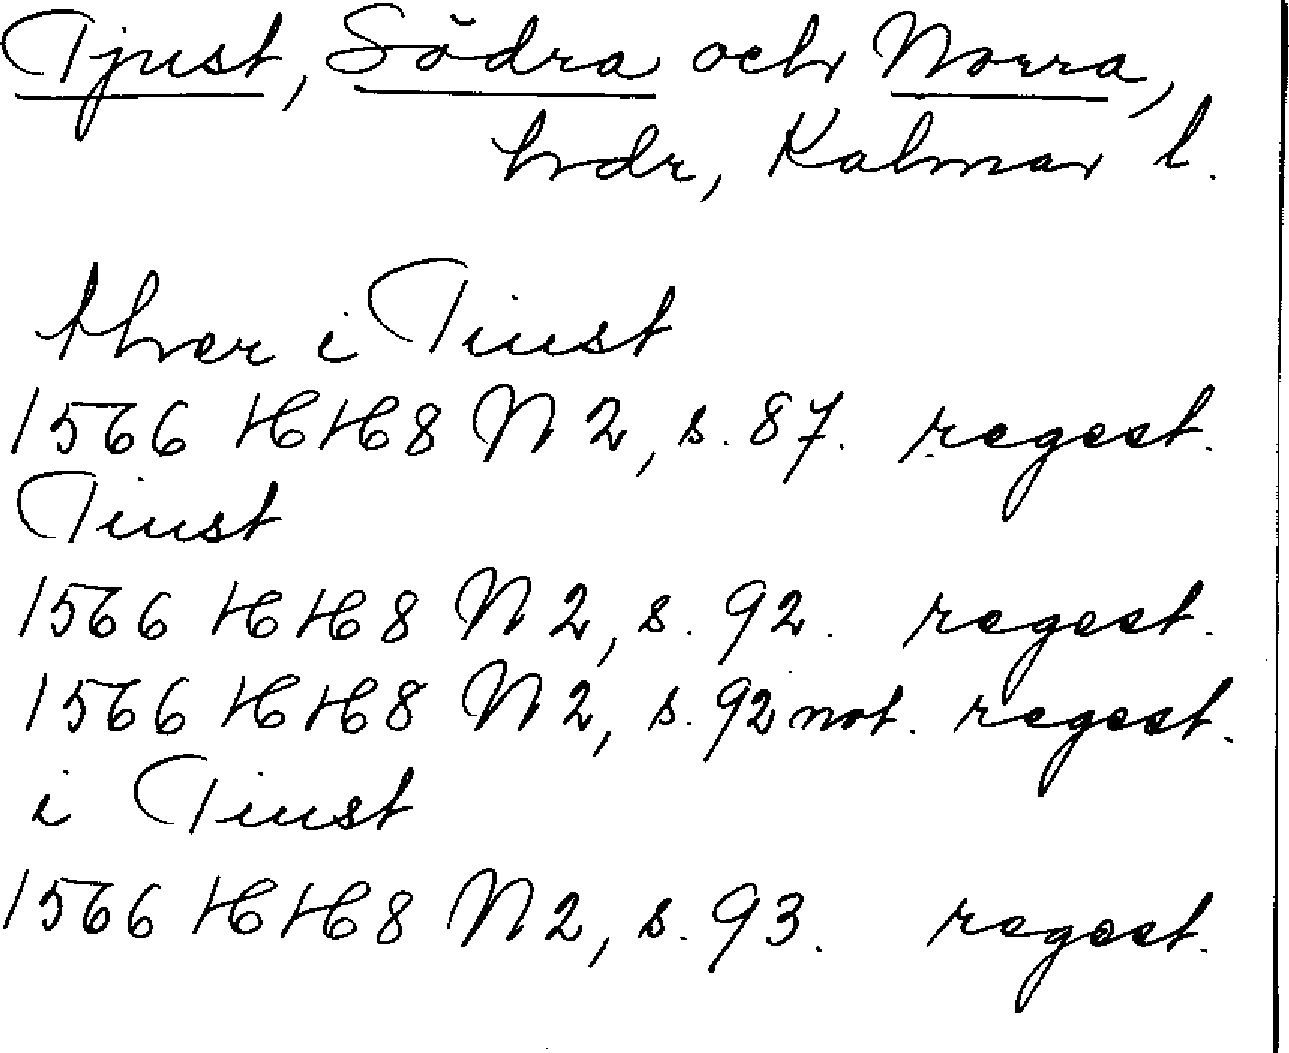 Tjust, Södra och Norra,
hrdr, Kalmar l.
thver i Tiust
1566 HH8 N 2, s. 87. regest.
Tiust
1566 HH8 N 2, s. 92. regest.
1566 HH8 N 2, s. 92 not. regest.
i Tiust
1566 HH8 N 2, s. 93. regest.